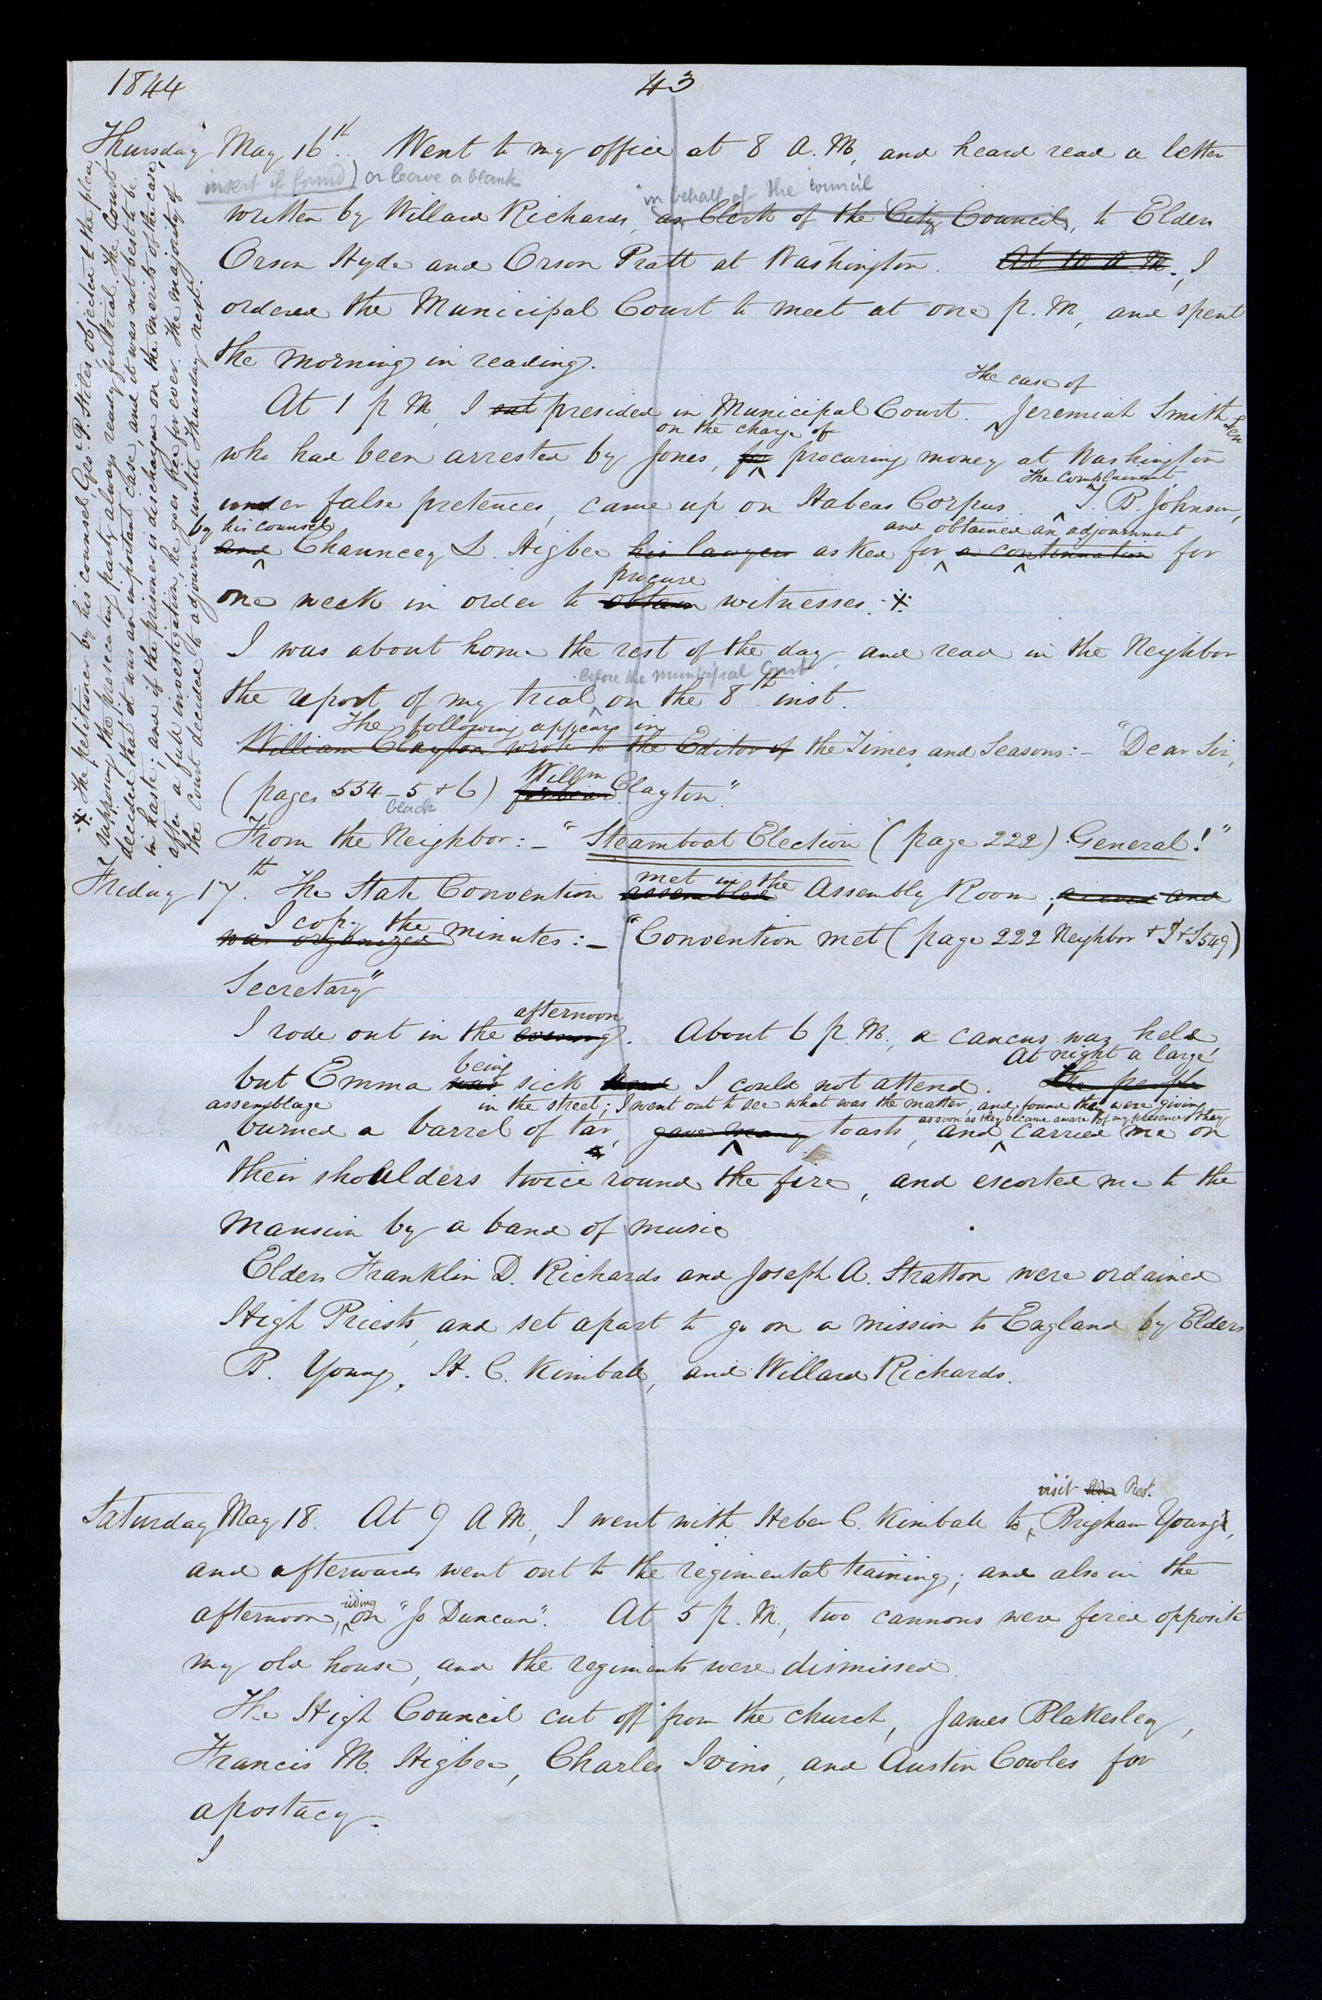 1844
43
Thursday May 16th. Went to my office at 8 A. M, and heard read a letter
insert if found) or leave a blank
in behalf of the council
written by Willard Richards, as Clerk of the City Council, to Elders
Orson Hyde and Orson Pratt at Washington. At 10 A. M., I
ordered the Municipal Court to meet at one p. M, and spent
the morning in reading.
the case of
At 1 p M, I sat presided in Municipal Court. Jeremiah Smith Sen
on the charge of
who had been arrested by Jones, for procuring money at Washington
the complainant,
under false pretences, came up on Habeas Corpus. T. B. Johnson,
by his counsel
and obtained an adjournment
and Chauncey L. Higbee his lawyers asked for a continuation for
procure
one week in order to obtain witnesses. *
I was about home the rest of the day, and read in the Neighbor
before the municipal Court
the report of my trial on the 8th inst.
The following appears in
William Clayton wrote to the Editor of the Times, and Seasons:- "Dear Sir,
Willm
(pages 554-5 & 6) Clayton."
black
From the Neighbor:- "Steamboat Election (page 222) General!"
met in the
Friday 17th. The State Convention assembled Assembly Room, and
I copy the
was organized minutes:- "Convention met (page 222 Neighbor & T & S 549)
Secretary"
afternoon
I rode out in the evening. About 6 p. M., a caucus was held
being
At night a large
but Emma was sick I could not attend. The people
assemblage
in the street; I went out to see what was the matter, and found they were giving
as soon as they became aware of my presence they
burned a barrel of tar, gave many toasts, and carried me on
their shoulders twice round the fire, and escorted me to the
mansion by a band of music
Elders Franklin D. Richards and Joseph A. Stratton were ordained
High Priests, and set apart to go on a mission to England by Elders
B. Young, H. C. Kimball, and Willard Richards.
visit Prest.
Saturday May 18. At 9 A M, I went with Heber C. Kimball to Brigham Young's,
and afterwards went out to the regimental training; and also in the
riding
afternoon, on "Jo Duncan". At 5 p. M., two cannons were fired opposite
my old house, and the regiments were dismissed.
The High Council cut off from the church, James Blakesley,
Francis M. Higbee, Charles Ivins, and Austin Cowles for
apostacy.
I
* The petitioner by his counsel, Geo. P. Stiles, objected to the plea,
supposing the prosecuting party always ready for trial. The Court
decided that it was an important case, and it was not best to be
in haste; and if the prisoner is discharged on the merits of the case,
after a full investigation, he goes free for ever. The majority of
the Court decided to adjourn until Thursday next.